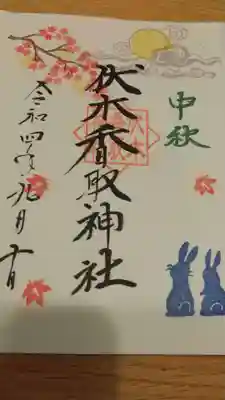 中秋
伏木香取神社
令和四年九月十日